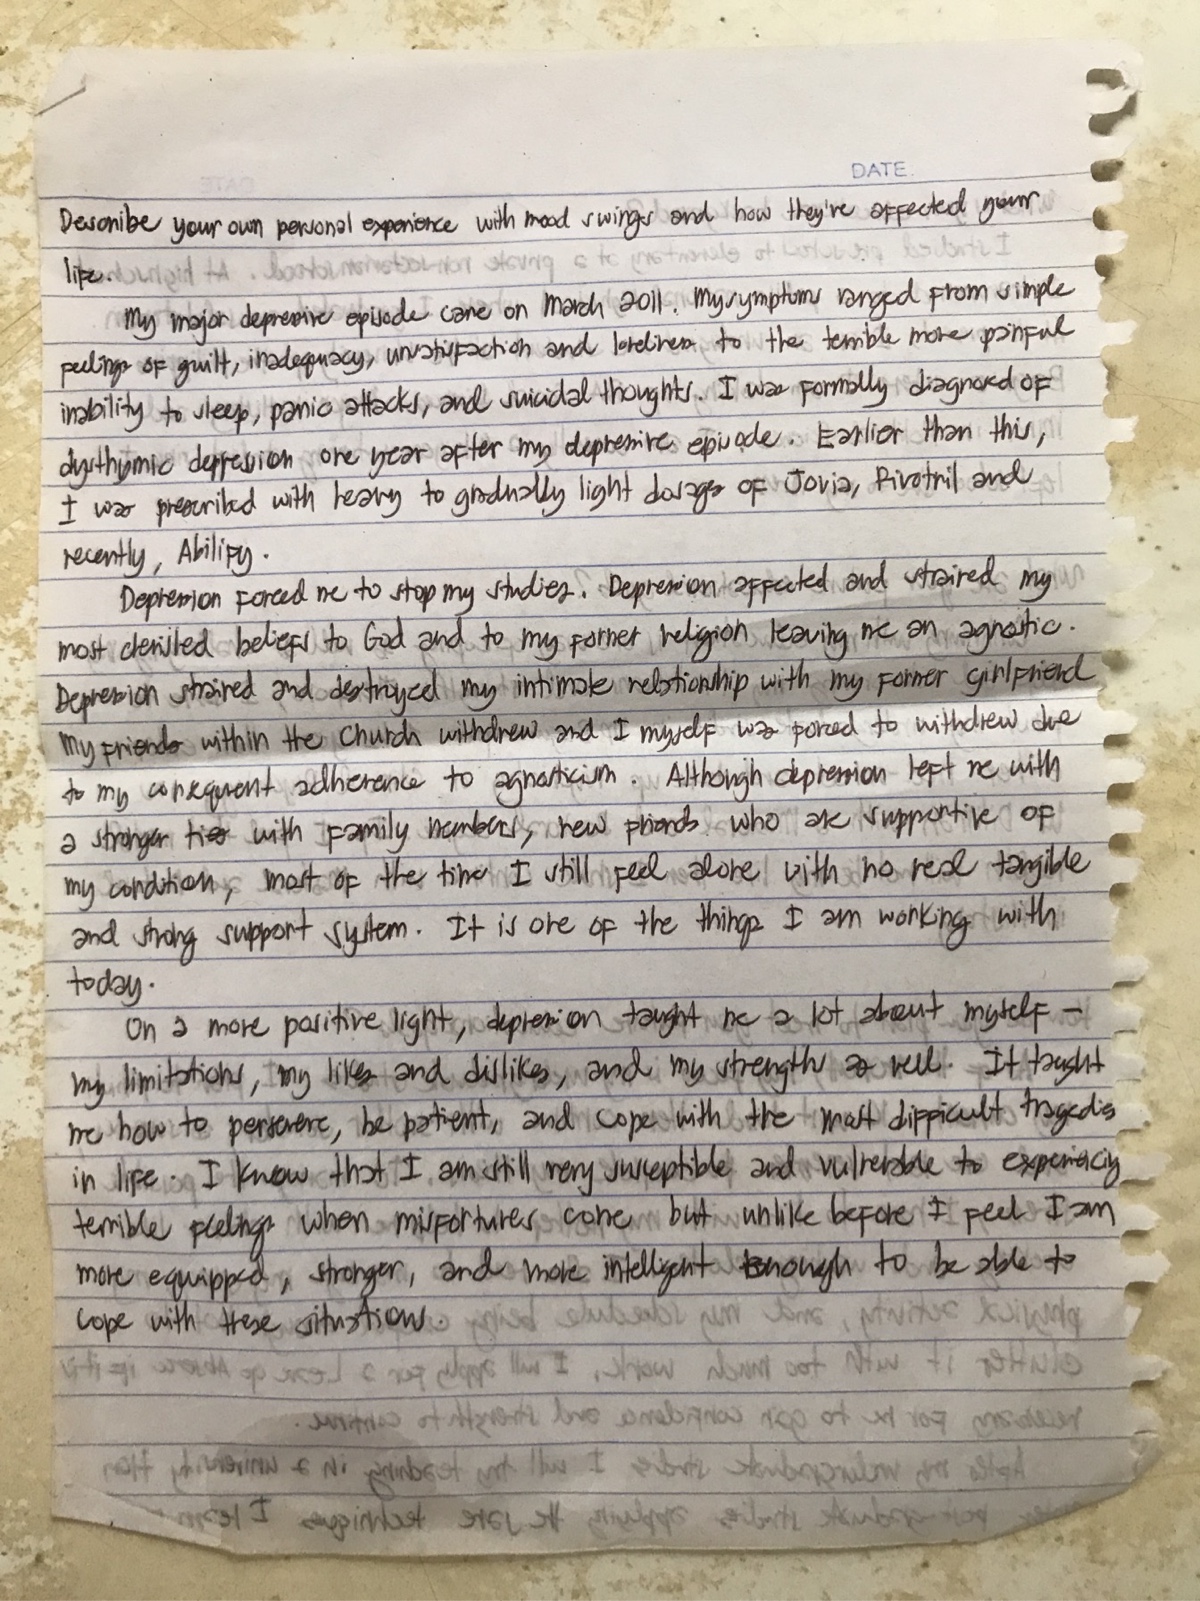 DATE
Describe your own personal experience with mood swings and how they're affected your
life.
My major depressive episode came on March 2011. My symptoms ranged from simple
feelings of guilt, inadequacy, unsatisfaction and loneliness to the terrible more painful
inability to sleep, panic attacks, and suicidal thoughts. I was formally diagnosed of
dysthymic depression one year after my depressive episode. Earlier than this,
I was prescribed with heavy to gradually light dosages of Jovia, Rivotril and
recently, Abilify.
Depression forced me to stop my studies. Depression affected and strained my
most cherished beliefs to God and to my former religion leaving me an agnostic.
Depression strained and destroyed my intimate relationship with my former girlfriend
My friends within the Church withdrew and I myself was forced to withdrew due
to my consequent adherence to agnosticism. Although depression left me with
a stronger ties with family members, new friends who are supportive of
my condition, most of the time I still feel alone with no real tangible
and strong support system. It is one of the things I am working with
today.
On a more positive light, depression taught me a lot about myself –
my limitations, my likes and dislikes, and my strength as well. It taught
me how to persevere, be patient, and cope with the most difficult tragedies
in life. I know that I am still very susceptible and vulnerable to experiencing
terrible feelings when misfortunes come but unlike before I feel I am
more equipped, stronger, and more intelligent enough to be able to
cope with these situations.